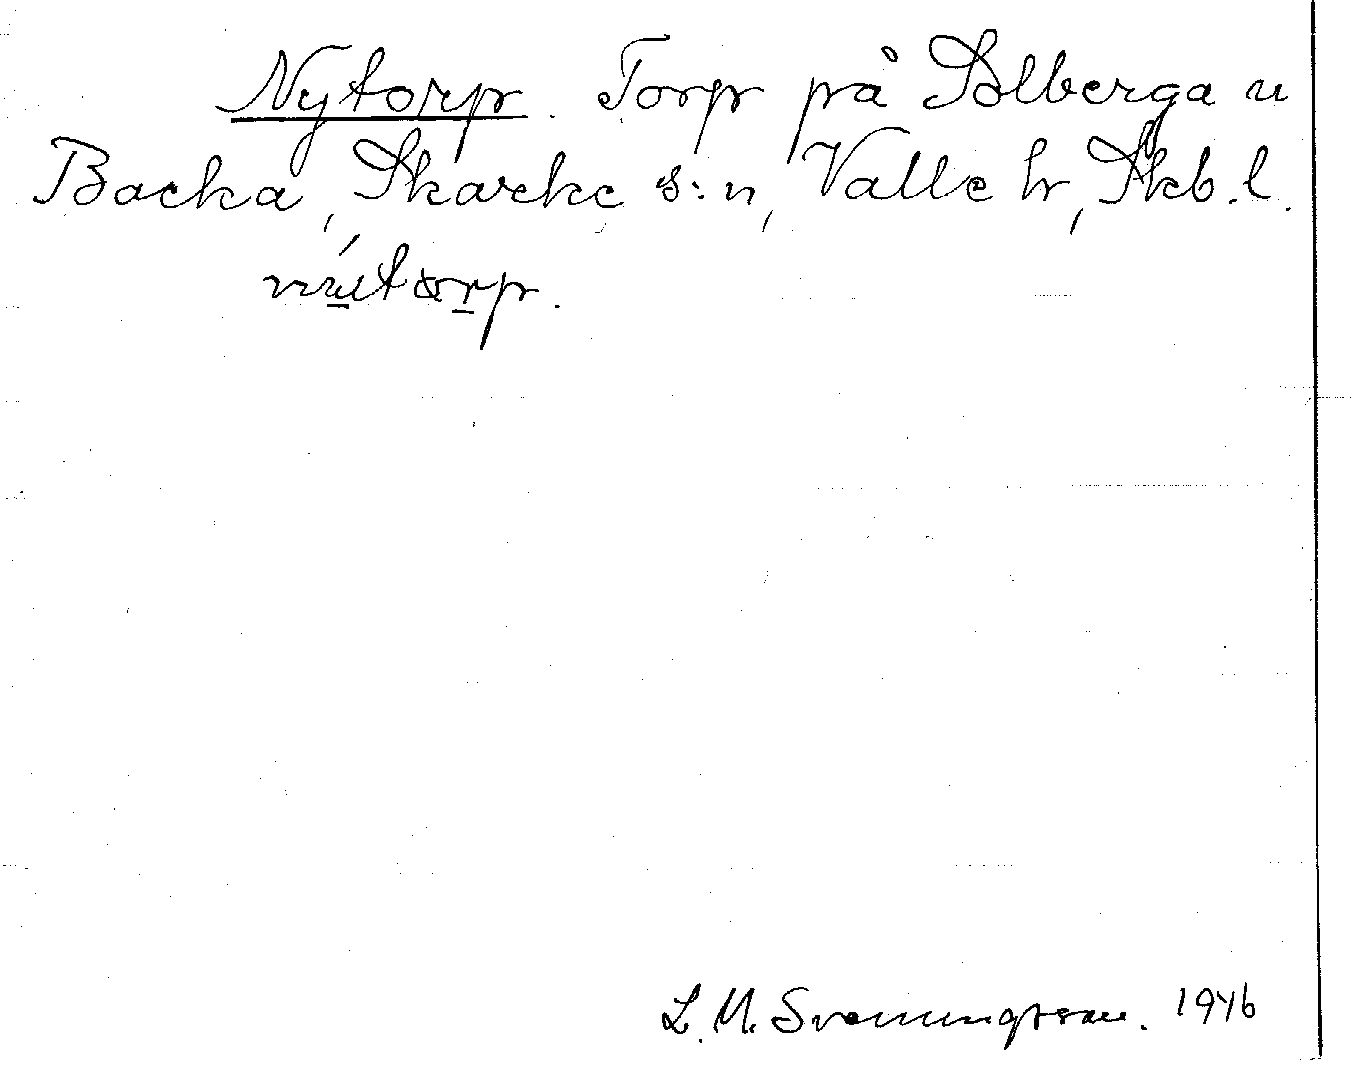 Nytorp. Torp på Solberga u
Backa, Skarke s:n, Valle hr, Skb.l.
L. M. Svenungsson. 1946